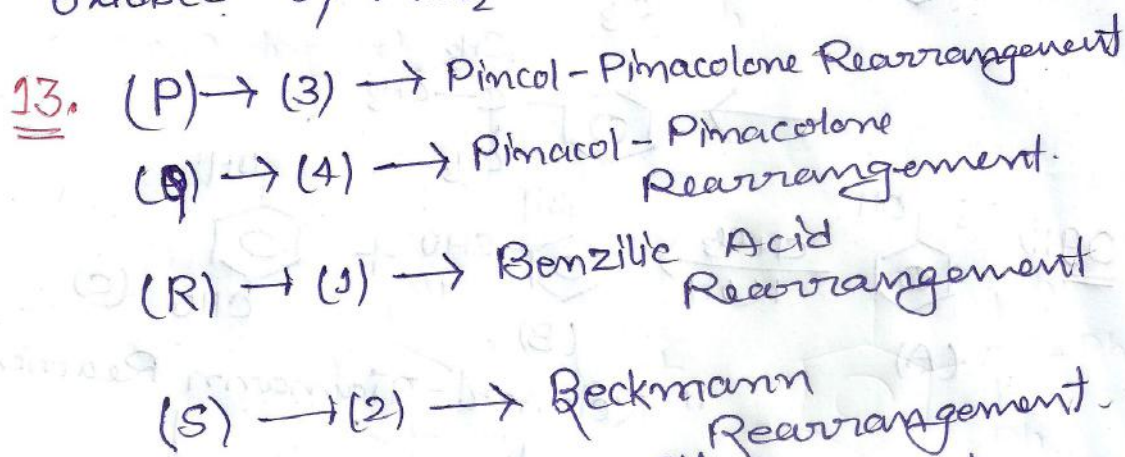 13. (P) → (3) → Pincol - Pinacolone Rearrangement
(Q) → (4) → Pinacol - Pinacolone
Rearrangement.
(R) → (1) → Benzilic Acid
Rearrangement
(S) → (2) → Beckmann
Rearrangement.